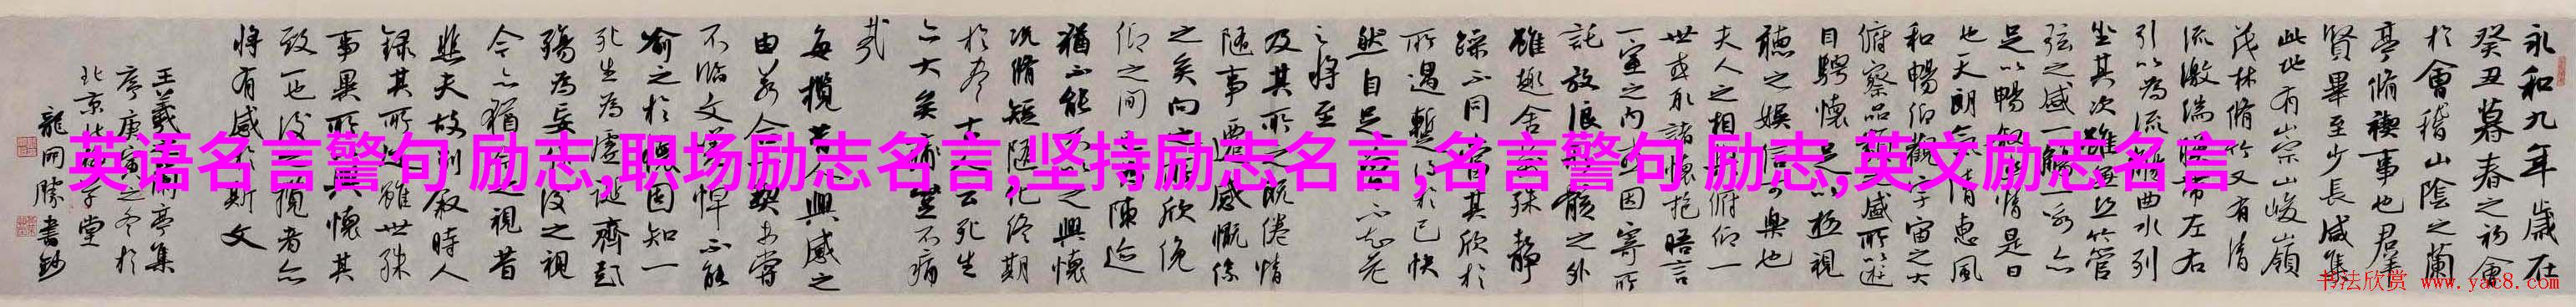 英语名言警句 励志,职场励志名言,坚持励志名言,名言警句 励志,英文励志名言
永和九年歲在
癸丑暮春之初會
於會稽山陰之蘭
亭脩禊事也群
賢畢至少長咸集
此地有崇山峻嶺
茂林脩竹又有清
流激湍映帶左右
引以為流觴曲水列
坐其次雖無絲竹管
弦之盛一觴一詠亦
足以暢敘幽情是日
也天朗氣清惠風
和暢仰觀宇宙之大
俯察品類之盛所以遊
目騁懷足以極視
聽之娛信可樂也
夫人之相與俯仰一
世或取諸懷抱晤言
一室之內或因寄所
託放浪形骸之外
雖趣舍萬殊靜
躁不同當其欣於
所遇暫得於己快
然自足不知老
之將至
及其所之既倦情
隨事遷感慨係
之矣向之所欣俛
仰之間已為陳迹
猶不能不以之興懷
況脩短隨化終期
於盡古人云死生
亦大矣豈不痛
哉
每攬昔人興感之
由若合一契未嘗
不臨文嗟悼不能
喻之於懷固知一
死生為虛誕齊彭
殤為妄作後之視
今亦猶今之視昔
悲夫故列敘時人
錄其所述雖世殊
事異所以興懷其
致一也後之攬者亦
將有感於斯文
王羲之蘭亭集
序庚寅之冬於
北京堂
龍開勝書鈔
书法欣赏 www.yac8.com